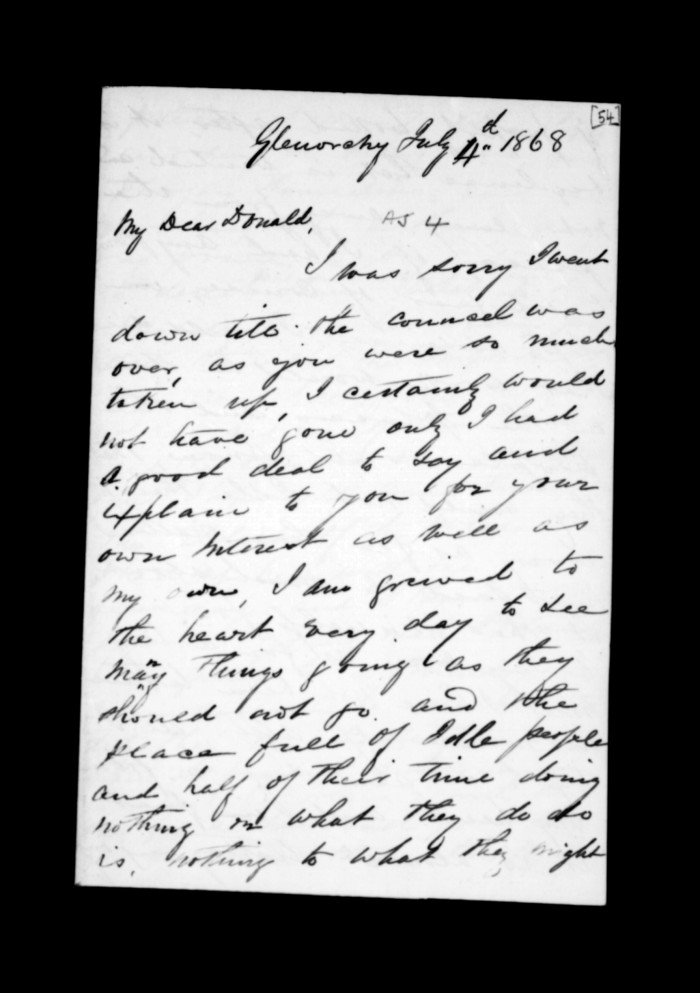 [54]
Glenorchy July 4d 1868
My Dear Donald,
AJ 4
I was sorry I went
down till the councel was
over, as you were so much
taken up, I certainly would
not have gone only I had
a good deal to say and
Explain to you for your
own Interest as well as
my own, I am greived to
the heart every day to see
many things going as they
should not go and the
place full of Idle people
and half of their time doing
nothing or what they do do
is, nothing to what they might